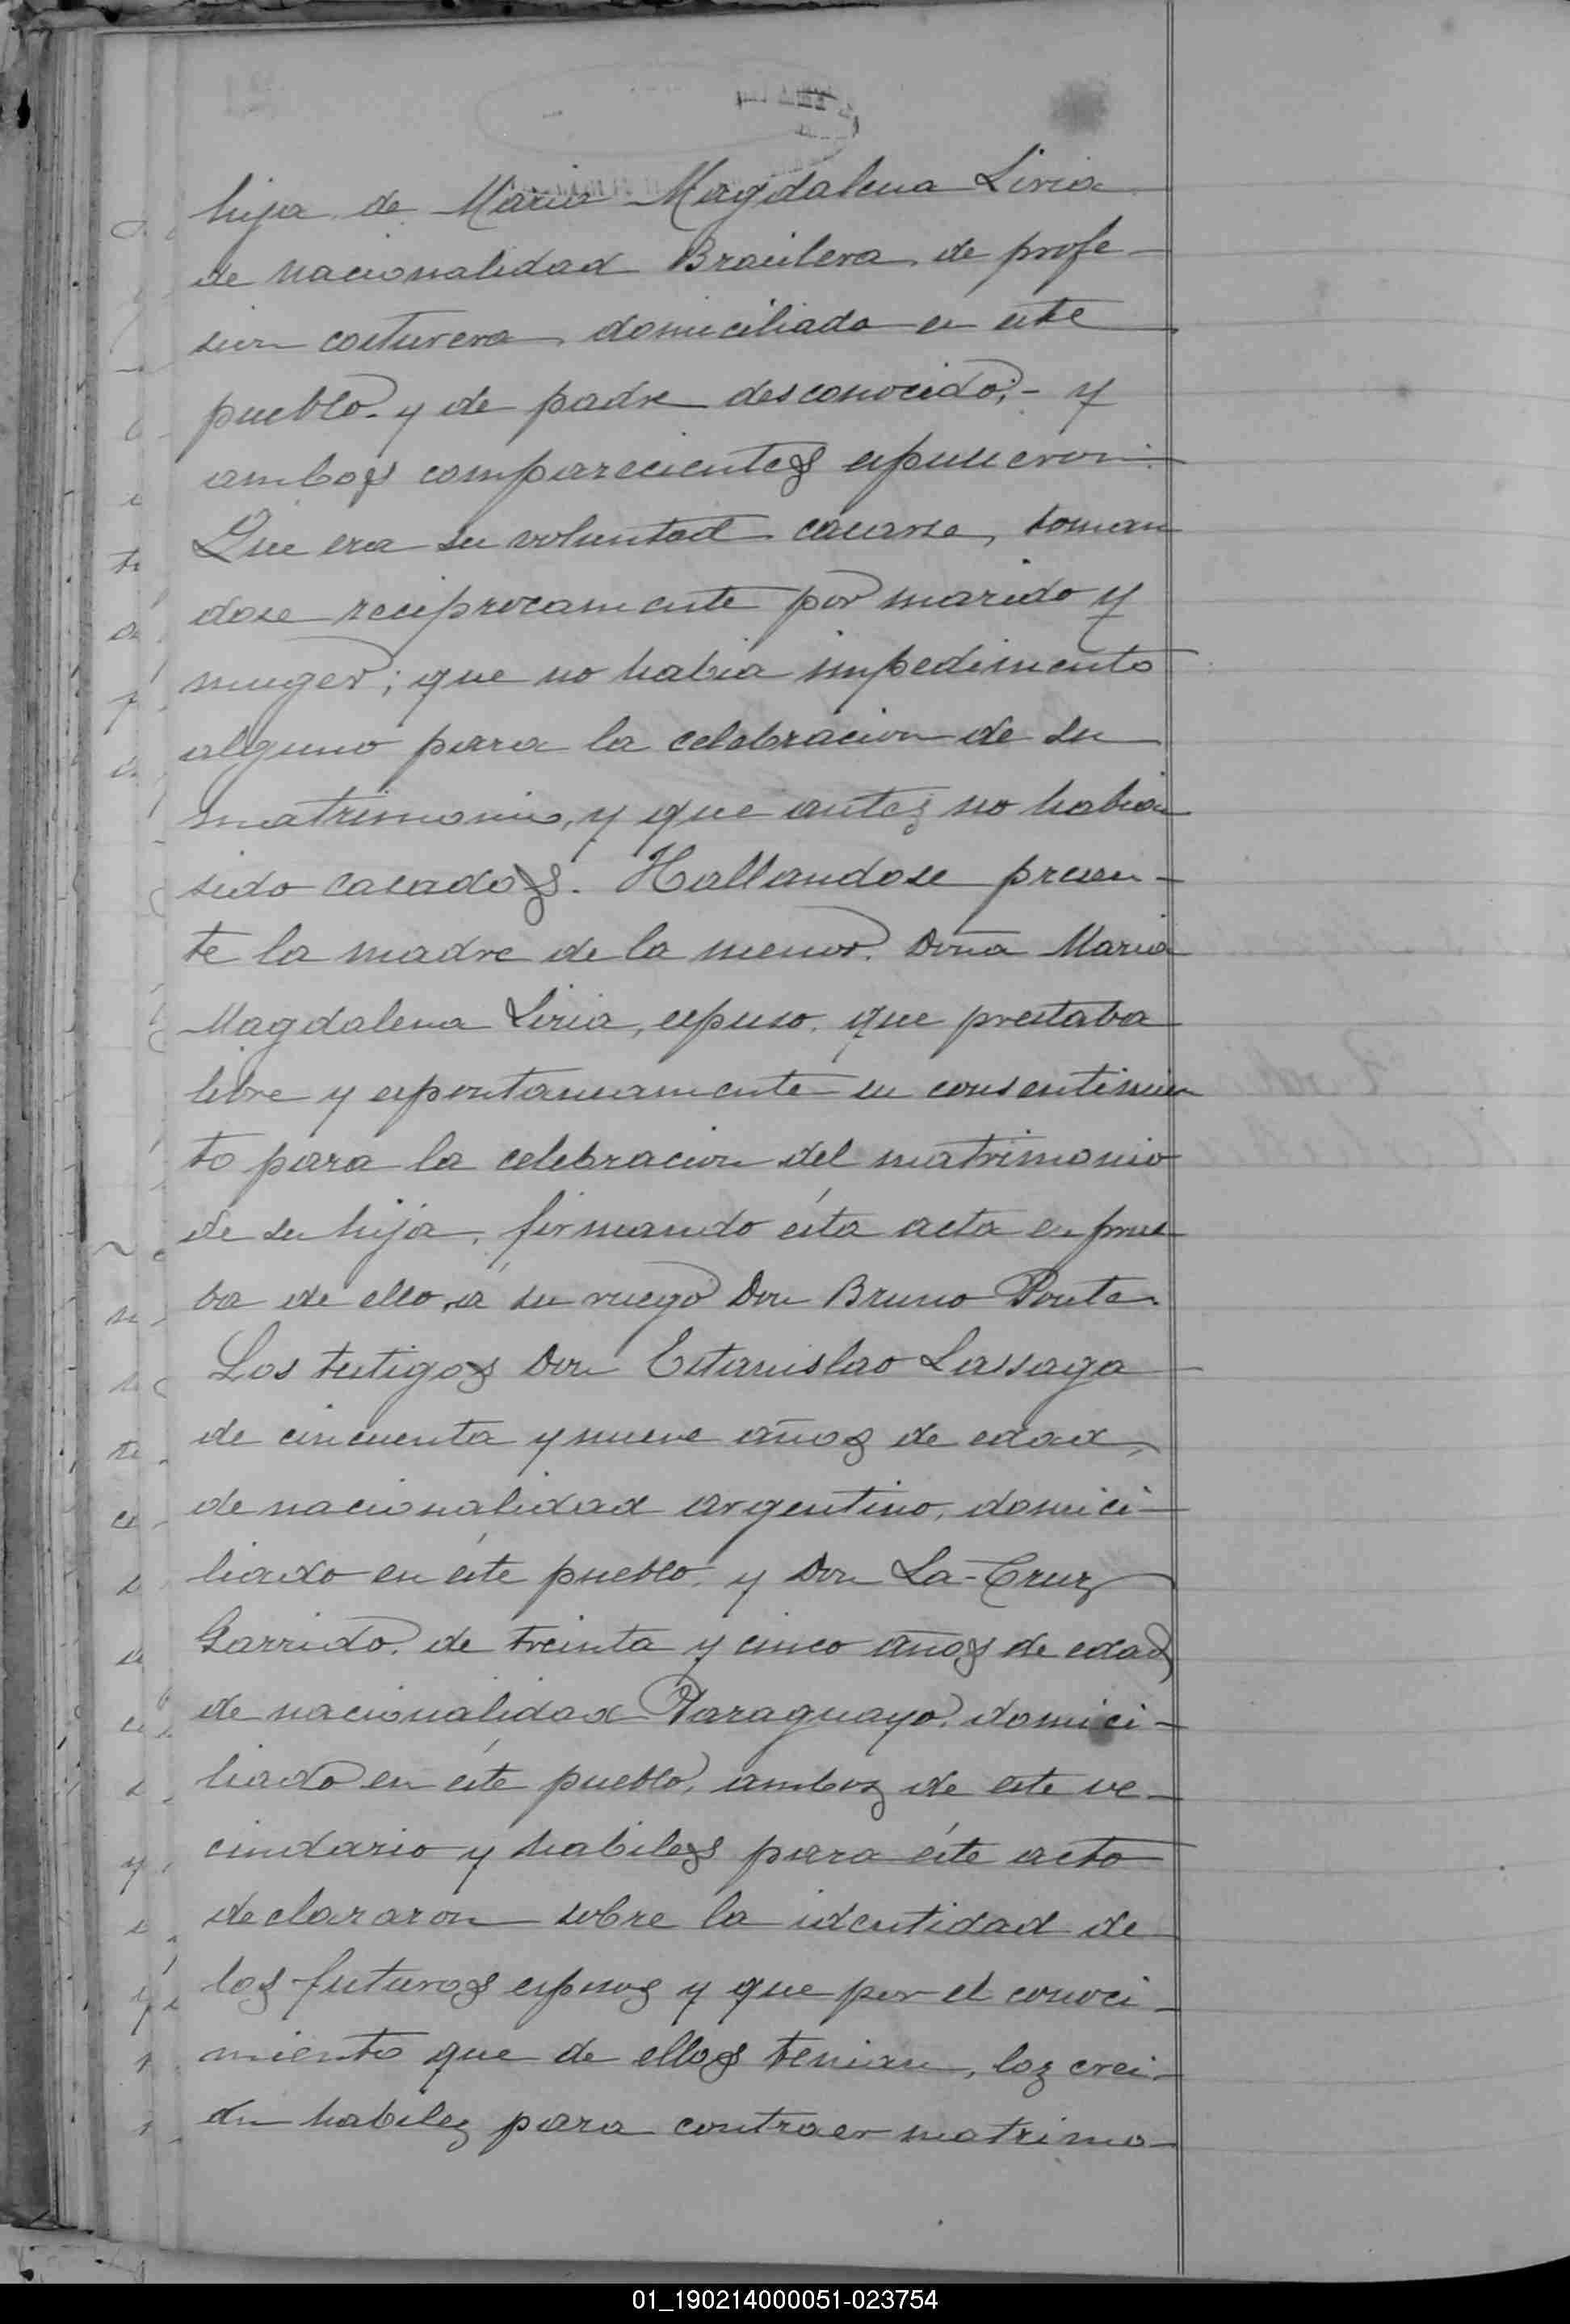 hija de Maria Magdalena Liria
de nacionalidad Bracilera, de profe-
sion costurera, domiciliada en este
pueblo y de padre desconocido; - y
ambos comparecientes espusieron:
Que era su voluntad casarse, toman
dose reciprocamente por marido y
muger; que no habia impedimento
alguno para la celebracion de su
matrimonio, y que antes no habian
sido casados. Hallandose presen-
te la madre de la menor. Doña Maria
Magdalena Liria, espuso, que prestaba
libre y espontaneamente su consentimien
to para la celebracion del matrimonio
de su hija, firmando ésta acta en prue
ba de ello, á su ruego Don Bruno Ponte
Los testigos Don Estanislao Lassaga
de cincuenta y nueve años de edad,
de nacionalidad argentino, domici-
liado en éste pueblo, y Don La-Cruz
Garrido, de treinta y cinco años de edad
de nacionalidad Paraguayo, domici-
liado en éste pueblo, ambos de este ve-
cindario y habiles para éste acto
declararon sobre la identidad de
los futuros esposos y que por el conoci-
miento que de ellos tenian, los crei-
an habiles para contraer matrimo-
01_190214000051-023754